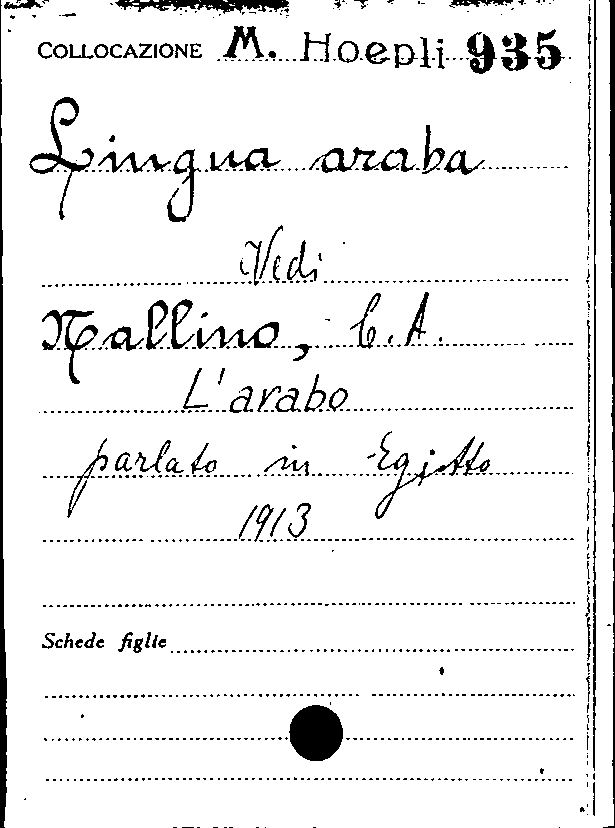 COLLOCAZIONE M. Hoepli 935
Lingua araba
Vedi
Nallino, C. A.
L'arabo
parlato in Egitto
1913
Schede figlie